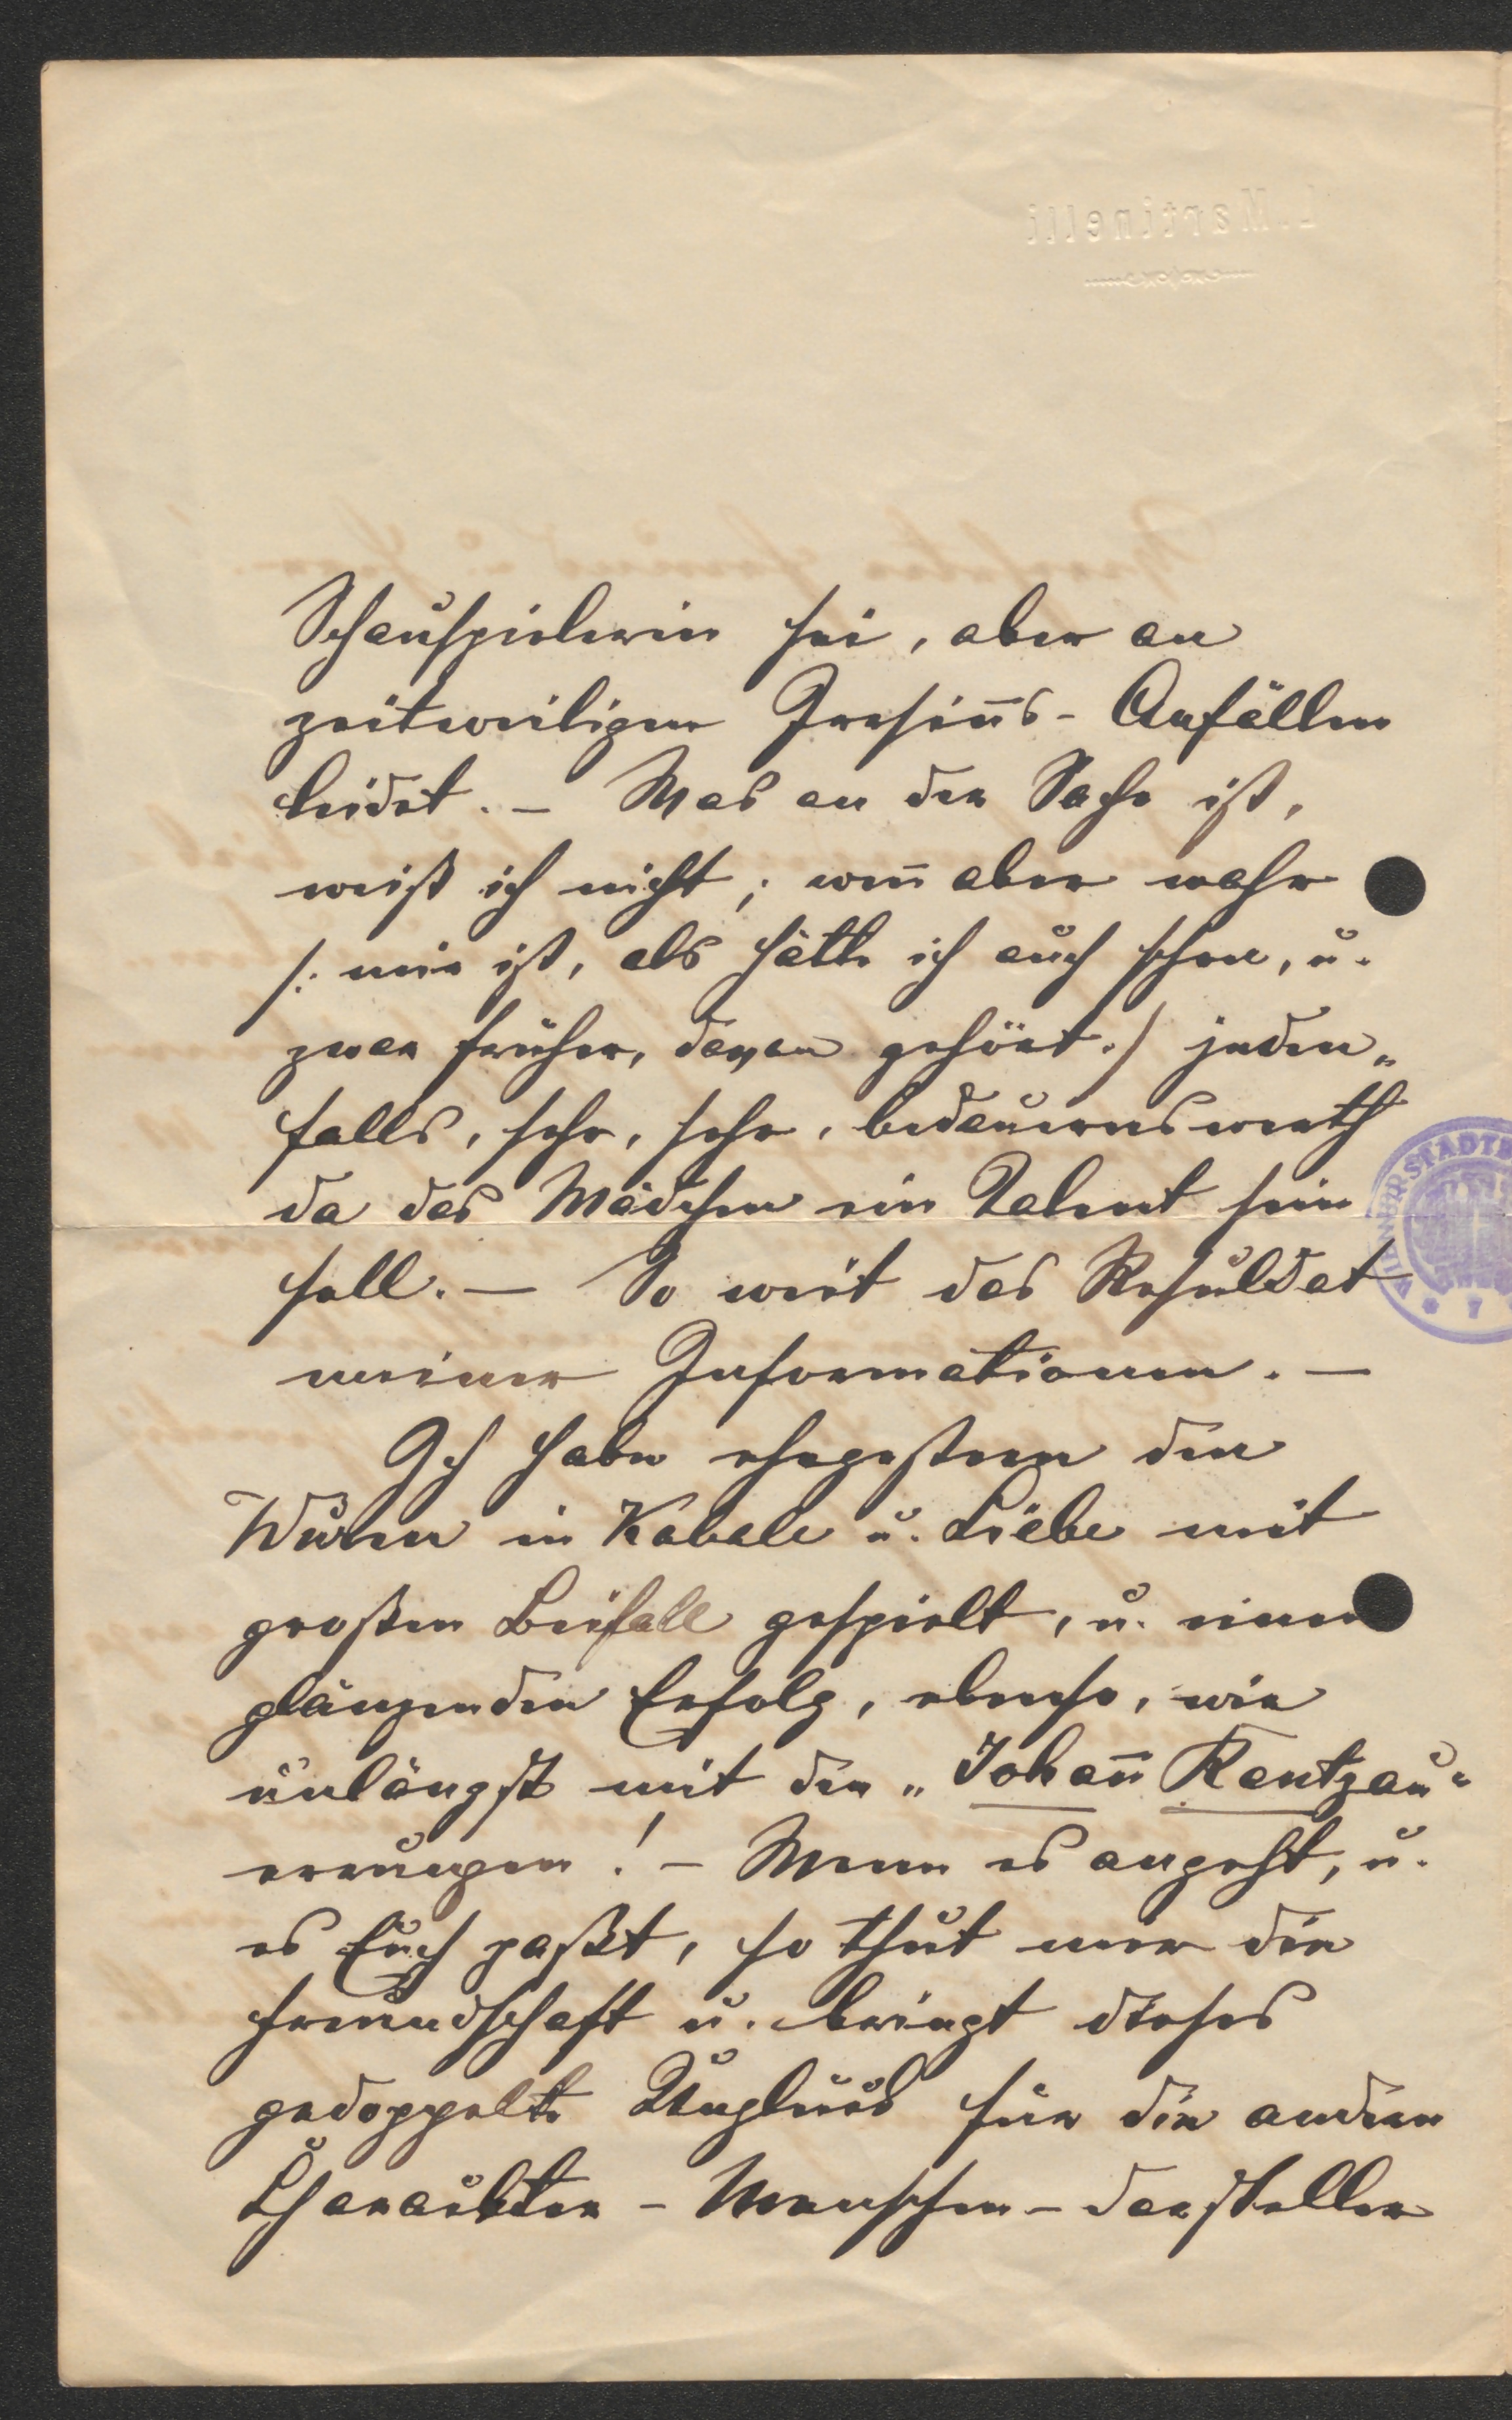 L. Martinelli
Schauspielerin sei, aber an
zeitweiligen Irrsin̄s-Anfällen
leidet. – Was an der Sache ist,
weiß ich nicht; wen̄ aber wahr
/: mir ist, als hätte ich auch schon, u.
zwar früher, davon gehört :/ jeden„
falls, sehr, sehr, bedauernswerth
da das Mädchen ein Talent sein
soll. – So weit das Resuldat
meiner Informationen. –
Ich habe ehegestern den
Wurm in Kabale u. Liebe mit
großem Beifall gespielt, u. einen
glänzenden Erfolg, ebenso, wie
unlängst mit den „Johan̄ Rantzau“
errungen! – Wenn es angeht, u.
es Euch paßt, so thut mir die
Freundschaft u. bringt dieses
gedoppelte Unglück für die andern
Charackter-Menschen-darsteller